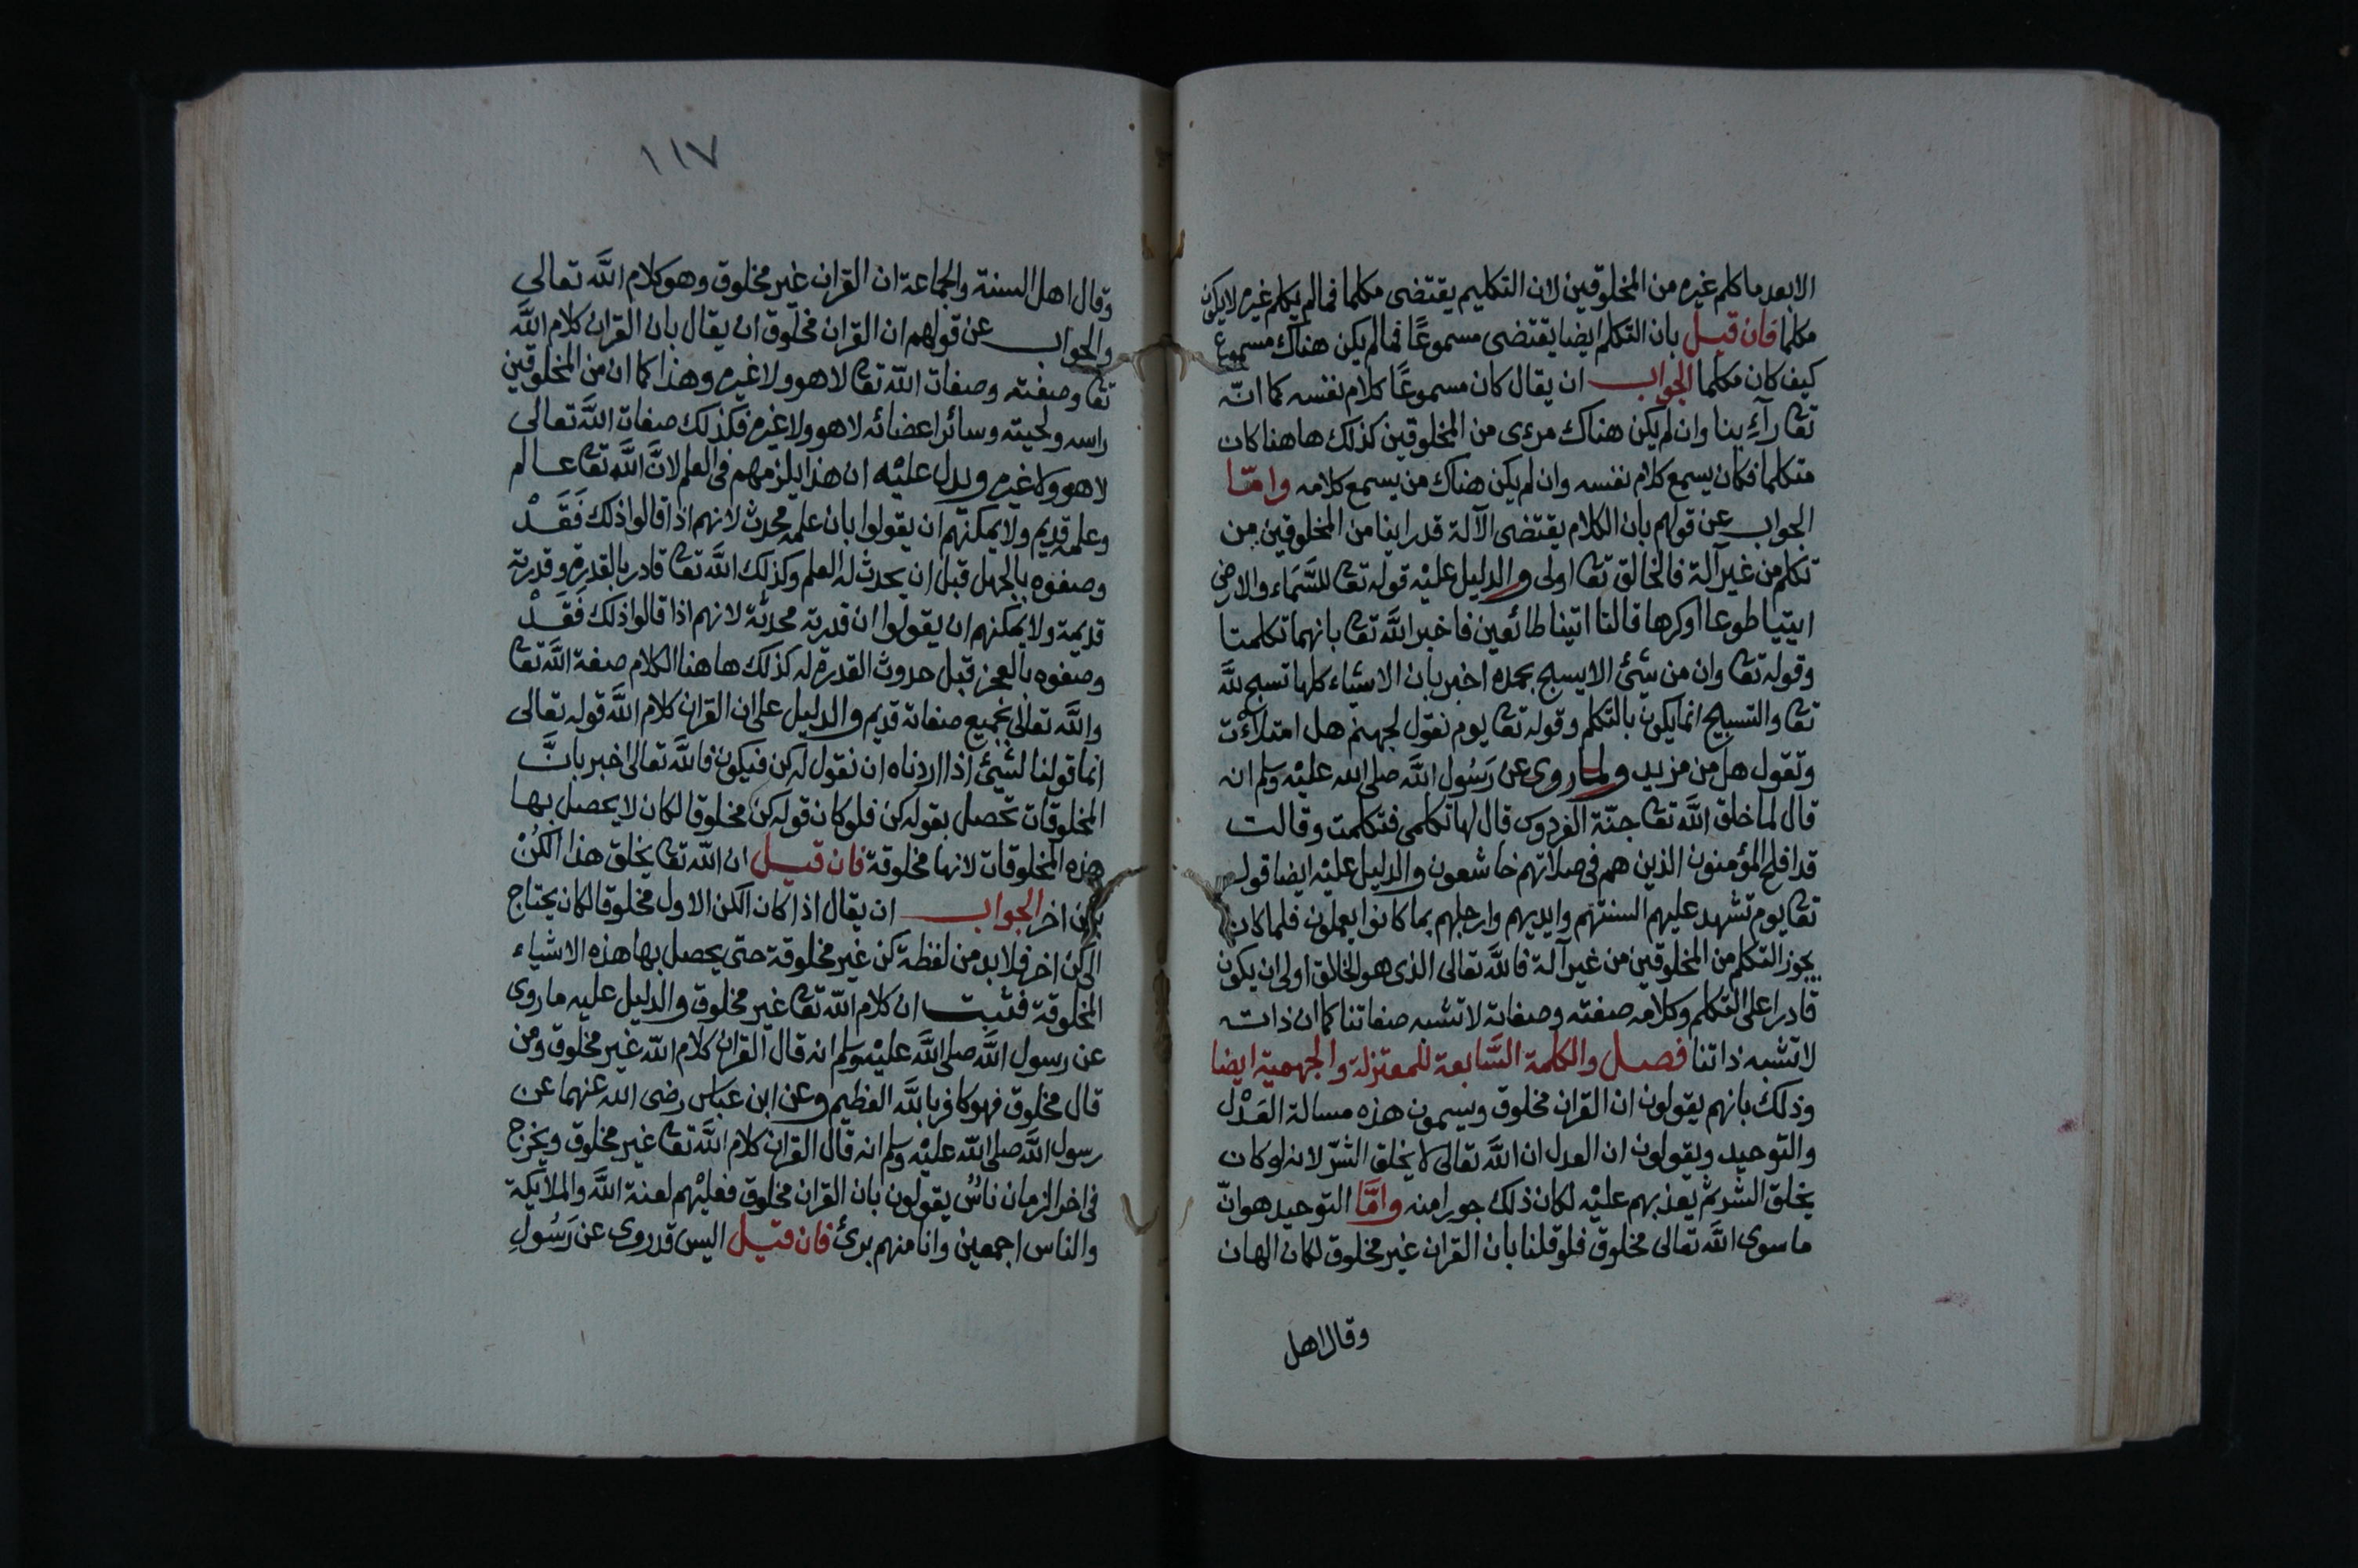 الابعد ما كلم غيره من المخلوقين لان التكليم يقتضى مكلما فمالم يكلم غيره لايكون
مكلما فان قيل بان التكلم ايضا يقتضى مسموعًا فمالم يكن هناك مسموع
كيف كان مكلما الجواب ان يقال كان مسموعًا كلام نفسه كما انّه
تعا رآءٍ بنا وان لم يكن هناك مرءى من المخلوقين كذلك هاهنا كان
متكلما فكان يسمع كلام نفسه وان لم يكن هناك من يسمع كلامه وامّا
الجواب عن قولهم بان الكلام يقتضى الآلة قد راينا من المخلوقين من
تكلم من غير آلة فالخالق تعا اولى والدليل عليْه قوله تعا للسَّمَاء والارض
ايتيا طوعا اوكرها قالتا اتينا طائعين فاخبر اللَّه تعا بانهما تكلمتا
وقوله تعا وان من شئ الايسبح بحمده اخبر بان الاشياء كلها تسبح للَّه
تعا والتسبيح انما يكون بالتكلم وقوله تعا يوم نقول لجهنم هل امتلأْت
وتقول هل من مزيد ولما روى عن رَسُول اللَّه صلى الله عليْه وسلم انه
قال لما خلق اللَّه تعا جنّة الفردوس قال لها تكلمى فتكلمت وقالت
قد افلح المؤمنون الذين هم فى صلاتهم خاشعون والدليل عليْه ايضا قوله
تعا يوم تشهد عليهم السنتهم وايديهم وارجلهم بما كانوا يعملون فلما كان
يجوز التكلم من المخلوقين من غير آلة فاللَّه تعالى الذى هو الخالق اولى ان يكون
قادرا على التكلم وكلامه صفته وصفاته لاتشبه صفاتنا كما ان ذاته
لاتشبه ذاتنا فصل والكلمة السَّابعة للمعتزلة والجهمية ايضا
وذلك بانهم يقولون ان القران مخلوق ويسمون هذه مسالة العَدْل
والتوحيد ويقولون ان العدل ان اللَّه تعالى لا يخلق الشرّ لانه لو كان
يخلق الشر ثم يعذبهم عليْه لكان ذلك جورا منه وامَّا التوحيد هو انّ
ما سوى اللَّه تعالى مخلوق فلو قلنا بان القران غير مخلوق لكان الهان
وقال اهل
١١٧
وقال اهل السنة والجماعة ان القران غير مخلوق وهو كلام اللَّه تعالى
والجواب عن قولهم ان القران مخلوق ان يقال بان القران كلام اللَّه
تعا وصفته وصفات اللّه تعا لاهو ولا غيره وهذا كما ان من المخلوقين
راسه ولحيته وسائر اعضائه لاهو ولا غيره فكذلك صفات اللَّه تعالى
لاهو ولا غيره ويدل عليْه ان هذا يلزمهم فى العلم لانَّ اللَّه تعا عالم
وعلمه قديم ولا يمكنهم ان يقولوا بان علمه محدث لانهم اذا قالوا ذلك فَقَدْ
وصفوه بالجهل قبل ان يحدث له العلم وكذلك اللَّه تعا قادر بالقدرة وقدرته
قديمة ولا يمكنهم ان يقولوا ان قدرته محدثة لانهم اذا قالوا ذلك فَقَدْ
وصفوه بالعجز قبل حدوث القدرة له كذلك هاهنا الكلام صفة اللَّه تعا
واللَّه تعالى بجميع صفاته قديم والدليل على ان القران كلام اللَّه قوله تعالى
انما قولنا لشئ اذا اردناه ان نقول له كن فيكون فاللَّه تعالى اخبر بانَّ
المخلوقات تحصل بقوله كن فلو كان قوله كن مخلوقا لكان لا يحصل بها
هذه المخلوقات لانها مخلوقة فان قيل ان اللّه تعا يخلق هذا الكُنْ
بكن اخر الجواب ان يقال اذا كان الكن الاول مخلوقا لكان يحتاج
الى كن اخر فلا بد من لفظة كن غير مخلوقة حتى يحصل بها هذه الاشياء
المخلوقة فثبت ان كلام اللّه تعا غير مخلوق والدليل عليه ما روى
عن رسول اللَّه صلى اللَّه عليْه وسلم انه قال القران كلام اللّه غير مخلوق ومن
قال مخلوق فهو كافر باللَّه العظيم وعن ابن عباس رضى الله عنهما عن
رسول اللَّه صلى اللّه عليْه وسلم انه قال القران كلام اللَّه تعا غير مخلوق ويخرج
فى اخر الزمان ناسٌ يقولون بان القران مخلوق فعليْهم لعنة اللَّه والملايكة
والناس اجمعين وانا منهم برئ فان قيل اليس قد روى عن رَسُولِ